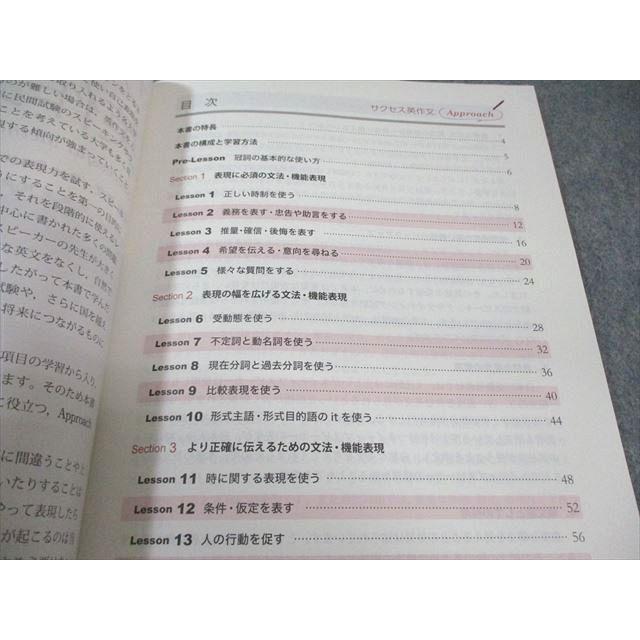 目 次
サクセス英作文 Approach
本書の特長 4
本書の構成と学習方法 5
Pre-Lesson 冠詞の基本的な使い方 6
Section 1 表現に必須の文法・機能表現
Lesson 1 正しい時制を使う 8
Lesson 2 義務を表す・忠告や助言をする 12
Lesson 3 推量・確信・後悔を表す 16
Lesson 4 希望を伝える・意向を尋ねる 20
Lesson 5 様々な質問をする 24
Section 2 表現の幅を広げる文法・機能表現
Lesson 6 受動態を使う 28
Lesson 7 不定詞と動名詞を使う 32
Lesson 8 現在分詞と過去分詞を使う 36
Lesson 9 比較表現を使う 40
Lesson 10 形式主語・形式目的語の it を使う 44
Section 3 より正確に伝えるための文法・機能表現
Lesson 11 時に関する表現を使う 48
Lesson 12 条件・仮定を表す 52
Lesson 13 人の行動を促す 56
が難しい場合は、英作文
に民間試験のスピーキング
ことを考えている大学も多
する傾向が強まっていく
での表現力を試す、スピ
にすることを第一の目的
それを段階的に使える
中心に書かれた多くの問題
ピーカーの先生が大き
な英文をなくし、自然で
したがって本書で学んだ
試験や，さらに国を越え
将来につながるものに
項目の学習から入り，
ます。そのため本書
に役立つ，Approach
に間違うことやと
いたりすることは
やって表現したら
が起こるのは当